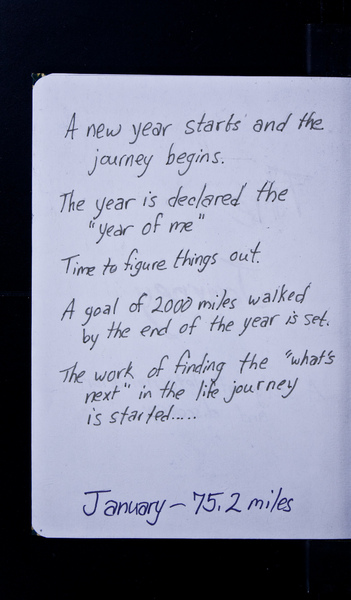 A new year starts and the
journey begins.
The year is declared the
"year of me"
Time to figure things out.
A goal of 2000 miles walked
by the end of the year is set.
The work of finding the "what's
next" in the life journey
is started.....
January - 75.2 miles